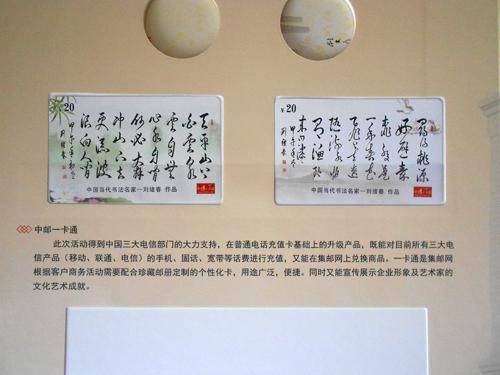 ¥20
天平山上
白雲泉
雲自無
心水自閒
何必奔
冲山下去
更添波
浪向人間
中国当代书法名家—刘绪春 作品
¥20
尋得桃源
好避秦
中国当代书法名家—刘绪春 作品
中邮一卡通
此次活动得到中国三大电信部门的大力支持，在普通电话充值卡基础上的升级产品，既能对目前所有三大电
信产品（移动、联通、电信）的手机、固话、宽带等话费进行充值，又能在集邮网上兑换商品。一卡通是集邮网
根据客户商务活动需要配合珍藏邮册定制的个性化卡，用途广泛，便捷。同时又能宣传展示企业形象及艺术家的
文化艺术成就。